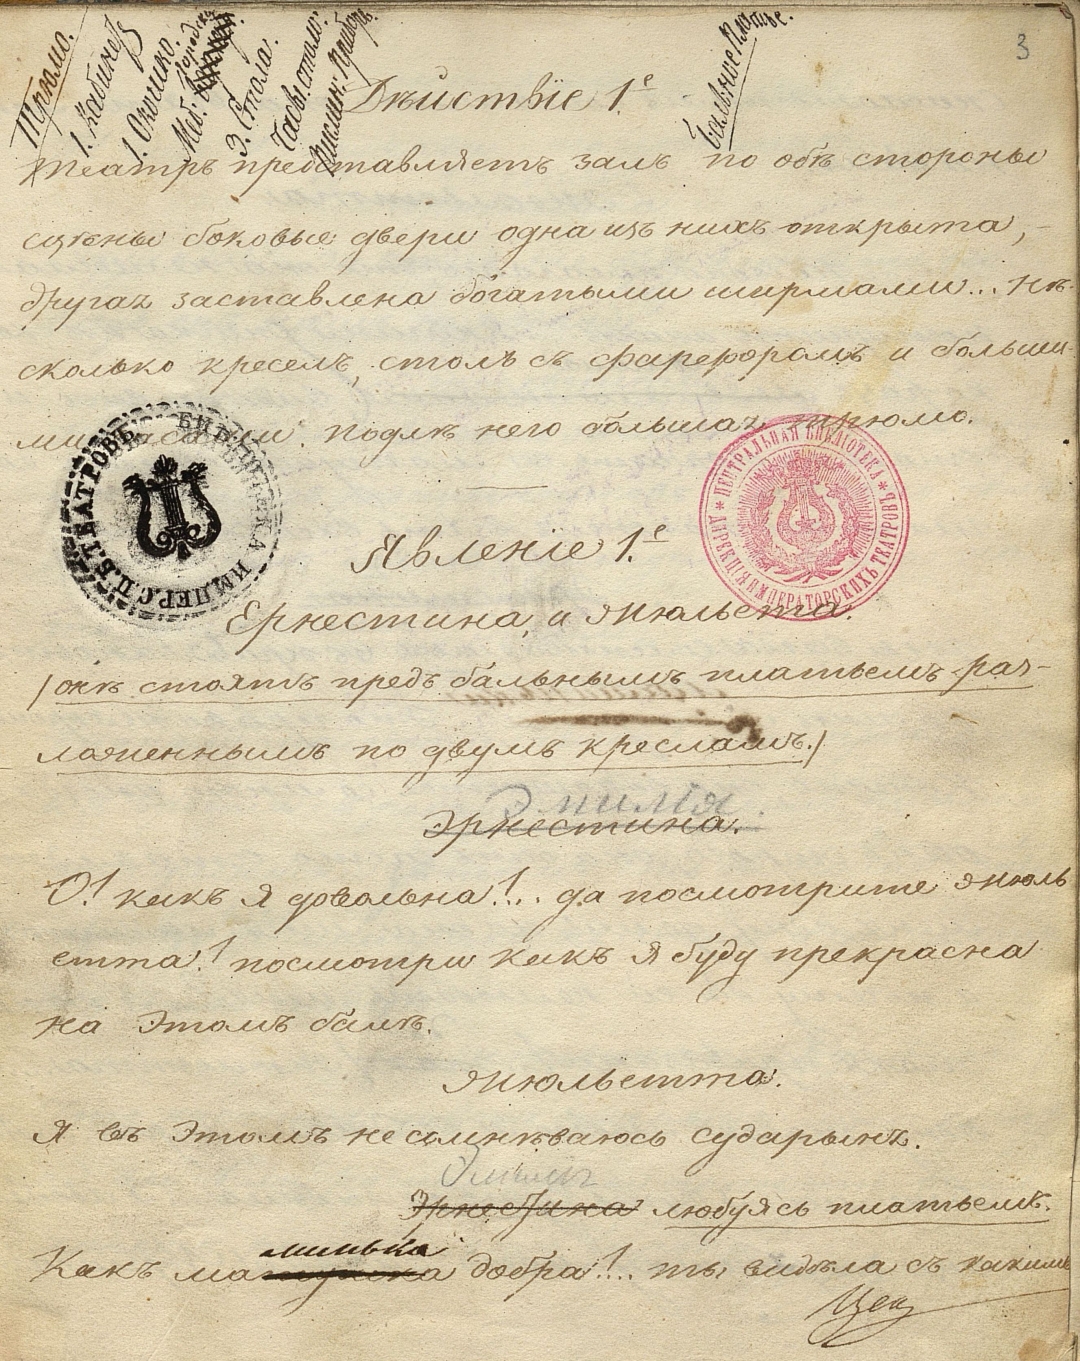 3
Трюмо.
1. Кабинетъ
1. Окошко.
Меб. Городска
3. Стола.
Часы стол:
Бальное Платье.
Дѣйствіе 1.е
Театръ представляетъ залъ по обѣ стороны
сцѣны боковые двери одна изъ нихъ открыта,
другая заставлена богатыми ширмами... Нѣ-
сколько креселъ, столъ съ фарфоромъ и большим-
ми часами. Подлѣ него большая трюмо.
БИБЛІОТЕКА ИМПЕР. С.П.Б. ТЕАТРОВЪ
ЦЕНТРАЛЬНАЯ БИБЛІОТЕКА * ДИРЕКЦІЯ ИМПЕРАТОРСКИХЪ ТЕАТРОВЪ *
Явленіе 1.е
Ернестина, и Жюльета.
/онѣ стоятъ предъ бальнымъ платьемъ раз-
ложеннымъ по двумъ кресламъ./
Эмилія.
Эрнестина.
О! какъ я довольна!... да посмотрите Жюль
етта! посмотри какъ я буду прекрасна
на Этомъ балѣ.
Жюльетта.
Я въ Этомъ не сумнѣваюсь сударыня.
Эмилія
Эрнестина любуясь платьемъ.
минька
Какъ матушка добра!... ты видѣла съ какимъ
Цен